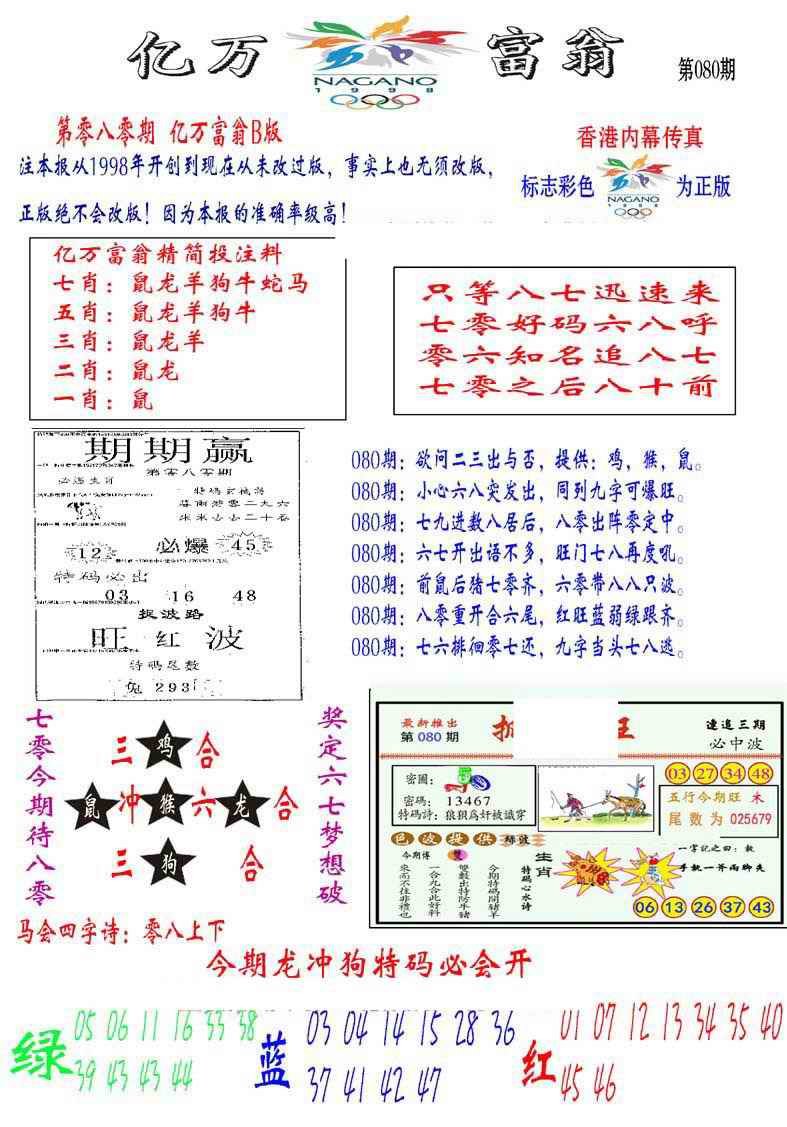 亿万富翁
NAGANO
1998
第080期
第零八零期 亿万富翁B版
香港内幕传真
注本报从1998年开创到现在从未改过版，事实上也无须改版，
正版绝不会改版！因为本报的准确率级高！
标志彩色
NAGANO
1998
为正版
亿万富翁精简投注料
七肖：鼠龙羊狗牛蛇马
五肖：鼠龙羊狗牛
三肖：鼠龙羊
二肖：鼠龙
一肖：鼠
只等八七迅速来
七零好码六八呼
零六知名追八七
七零之后八十前
期期赢
第零八零期
必爆
12
45
特码必出
03 16 48
捉波路
旺红波
特码尾数
兔 293
080期：欲问二三出与否，提供：鸡，猴，鼠。
080期：小心六八突发出，同到九字可爆旺。
080期：七九进数八居后，八零出阵零定中。
080期：六七开出语不多，旺门七八再度吼。
080期：前鼠后猪七零齐，六零带八八只波。
080期：八零重开合六尾，红旺蓝弱绿跟齐。
080期：七六徘徊零七还，九字当头七八逃。
七零今期待八零
三 鸡 合
鼠 冲 猴 六 龙 合
三 狗 合
奖定六七梦想破
最新推出
第 080 期
王
連追三期
必中波
密圖：
密碼： 13467
特碼詩：狼狽為奸被識穿
03 27 34 48
五行今期旺 木
尾数为 025679
色波提供 綠波
今期博 雙
來而不往非禮也
一合九合此好料
雙數出特防牛豬
今期特碼開豬羊
特碼心水诗
生肖
一字記之曰：数
手軟一斧兩脚失
06 13 26 37 43
马会四字诗：零八上下
今期龙冲狗特码必会开
绿
05 06 11 16 33 38
39 43 43 44
蓝
03 04 14 15 28 36
37 41 42 47
红
01 07 12 13 34 35 40
45 46